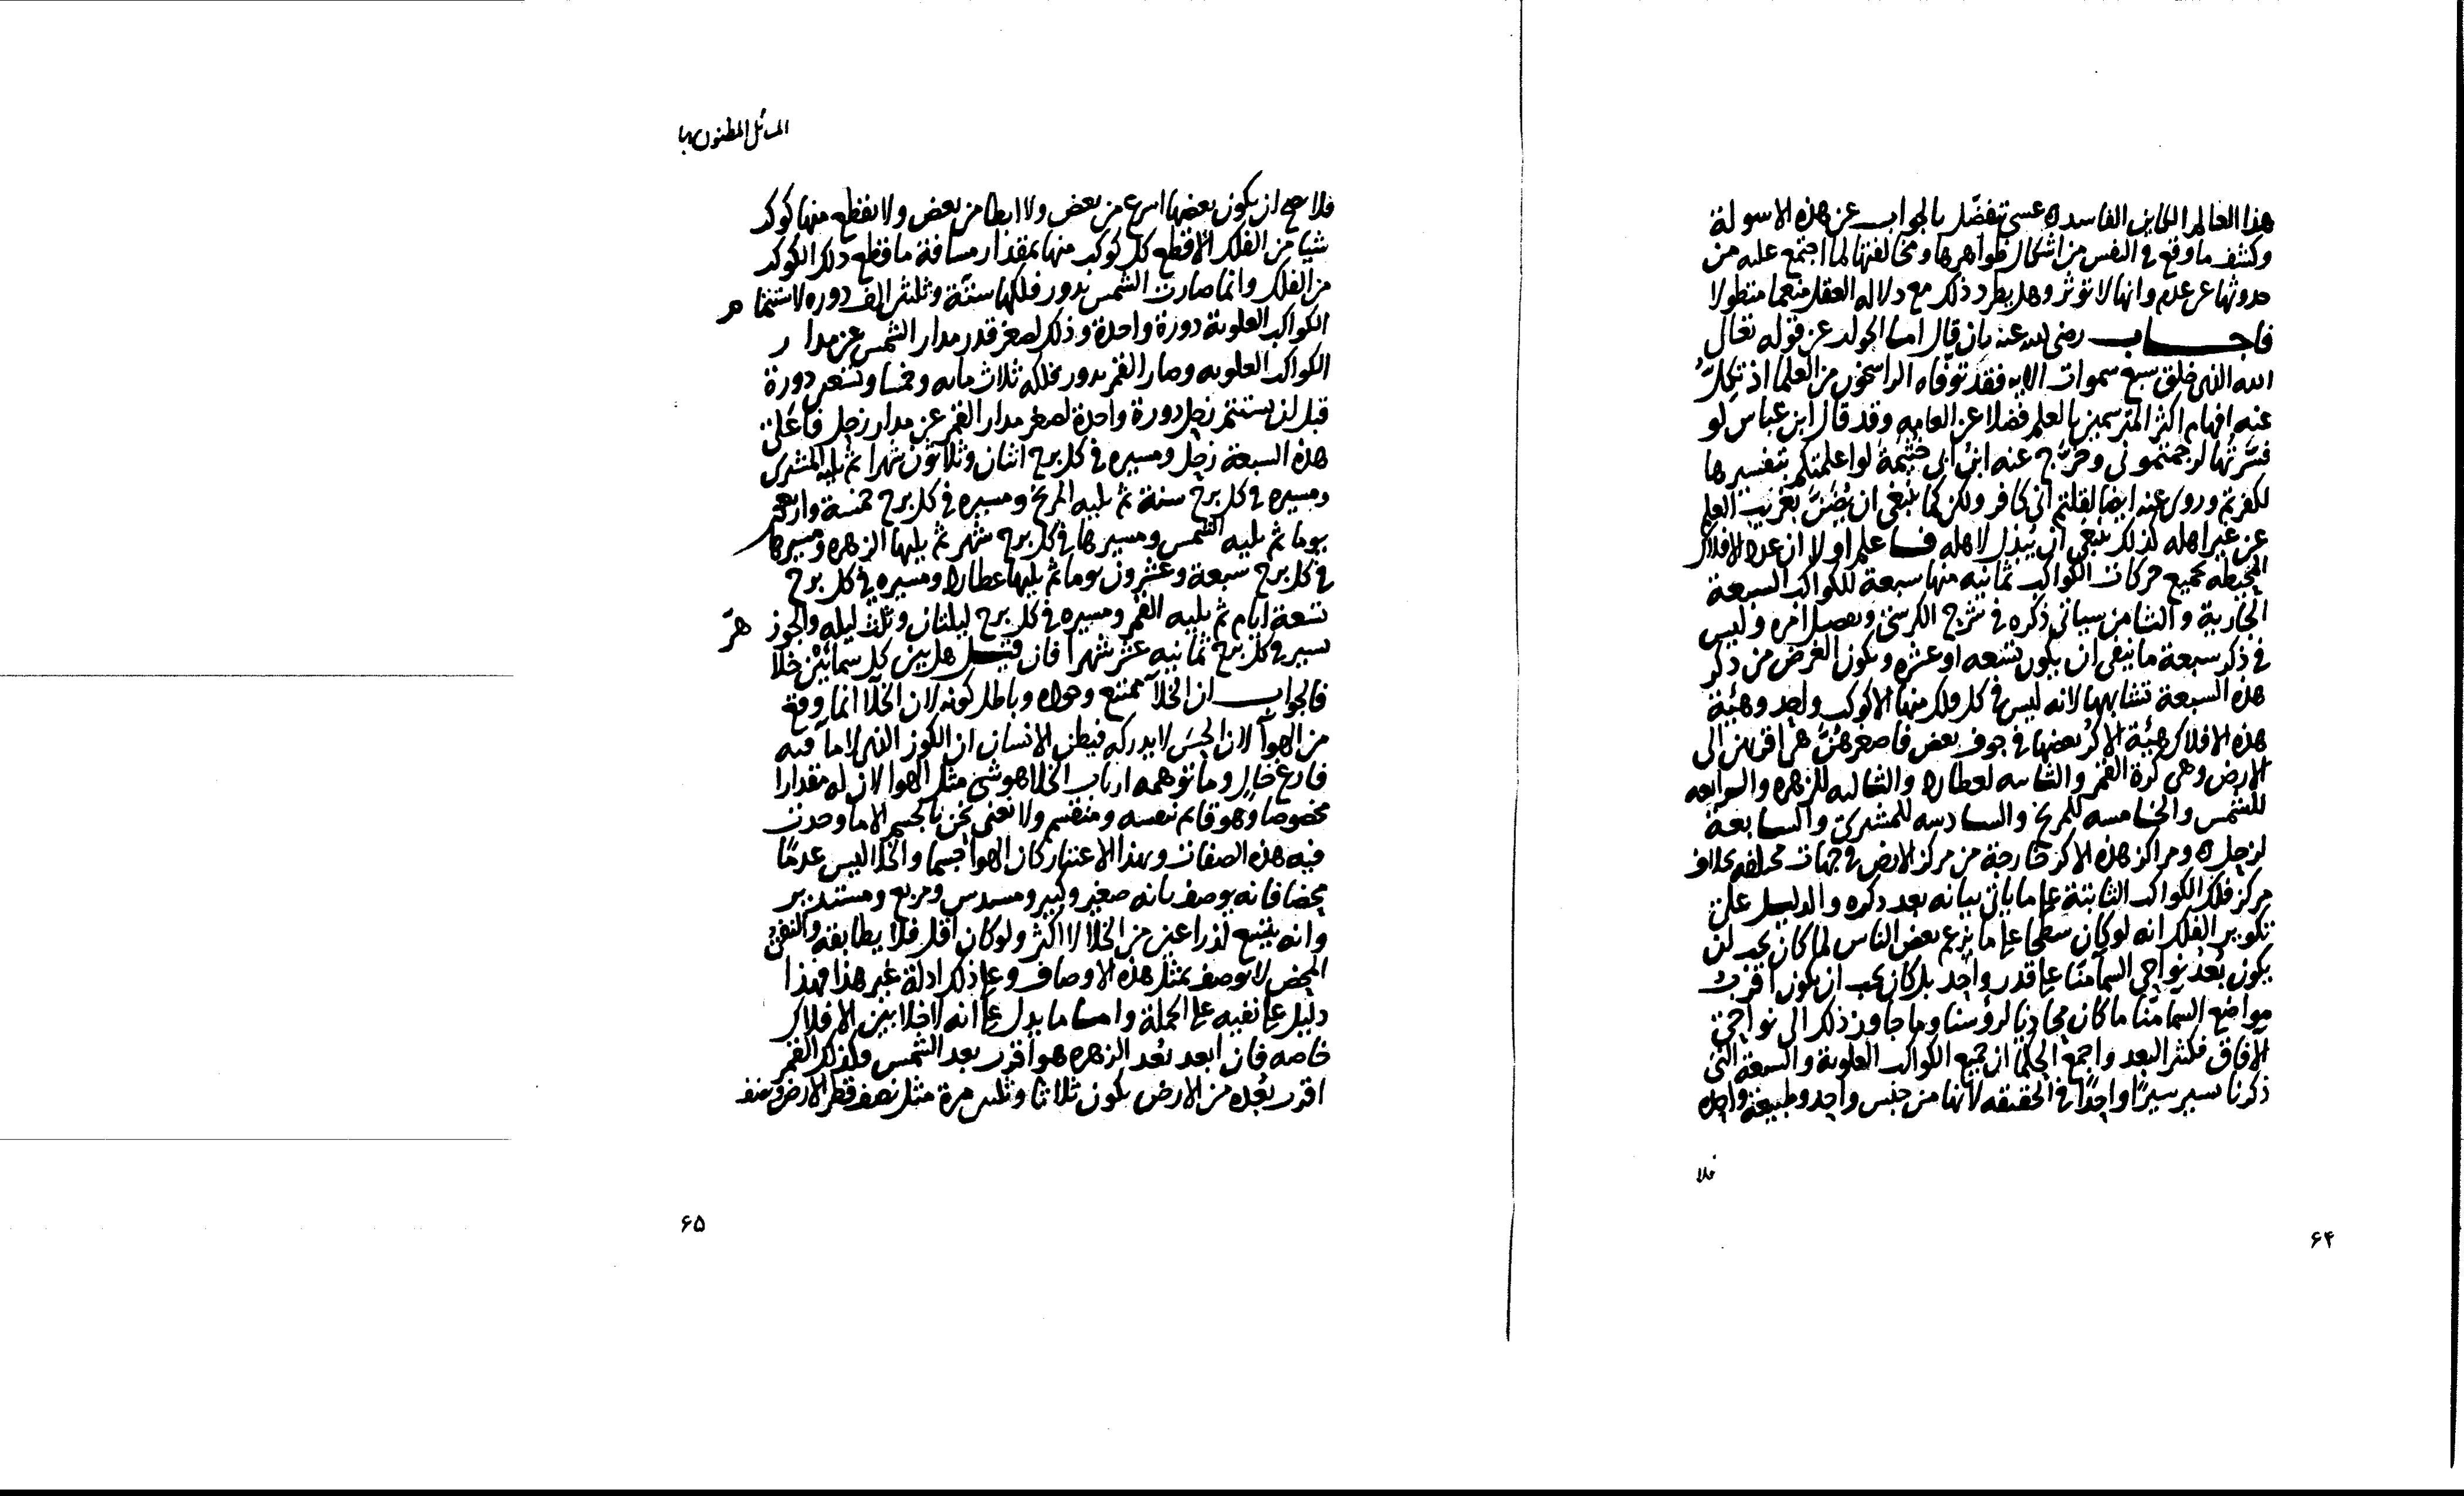 هذا العالم الكاين الفاسد ه عسى تتفضل بالجواب عن هذه الاسولة
وكشف ما وقع في النفس من اشكال ظواهرها ومخالفتها لما اجتمع عليه من
حدوثها عن عدم وانها لا تؤثر وهل يطرد ذلك مع دلاله العقل منعما متطولا
فاجاب رضى الله عنه بان قال اما الجواب عن قوله تعالى
الله الذى خلق سبع سموات الايه فقد توفاه الراسخون من العلما اذ تكل
عنه افهام اكثر المترسمين بالعلم فضلا عن العامه وقد قال ابن عباس لو
فسرتها لرجمتمونى وخرج عنه ابن ابى خيثمة لو اعلمتكم بتفسيرها
لكفرتم وروى عنه ايضا لقلتم انى كافر ولكن كما ينبغى ان يضن بغريب العلم
عن غير اهله كذلك ينبغى ان يبذل لاهله فاعلم اولا ان عده الافلاك
المحيطه بجميع حركات الكواكب ثمانيه منها سبعة للكواكب السبعة
الجارية والثامن سياتى ذكره في شرح الكرسى وتفصيل امره وليس
في ذكر سبعة ما ينفى ان يكون تسعه او عشره ويكون الغرض من ذكر
هذه السبعة تشابهها لانه ليس في كل فلك منها الا كوكب واحد وهيئة
هذه الافلاك هيئة الاكر بعضها في جوف بعض فاصغرهن هى اقربهن الى
الارض وهى كرة القمر والثانيه لعطارد والثالثه للزهره والرابعه
للشمس والخامسه للمريخ والسادسه للمشترى والسابعة
لزحل ه ومراكز هذه الاكر خارجة من مركز الارض في جهات مختلفه بخلاف
مركز فلك الكواكب الثابتة على ما ياتى بيانه بعد ذكره والدليل على
تكوير الفلك انه لو كان سطحا على ما يزعم بعض الناس لما كان يجب ان
يكون بعد نواحى السما منا على قدر واحد بل كان يجب ان يكون اقرب
مواضع السما منا ما كان محاذيا لرؤسنا وما جاوز ذلك الى نواحى
الافاق فكثير البعد واجمع الحكما ان جميع الكواكب العلوية والسبعة التى
ذكرنا تسير سيرا واحدا في الحقيقه لانها من جنس واحد وطبيعة واحده
فلا
۶۴
المسائل المظنون بها
فلا يصح ان يكون بعضها اسرع من بعض ولا ابطا من بعض ولا يقطع منها كوكب
شيا من الفلك الا قطع كل كوكب منها بمقدار مسافة ما قطع ذلك الكوكب
من الفلك وانما صارت الشمس تدور فلكها ستة وثلثين الف دوره لاستتمام
الكواكب العلوية دورة واحدة وذلك لصغر قدر مدار الشمس عن مدار
الكواكب العلويه وصار القمر يدور فلكه ثلاث مايه وخمسا وتسعين دورة
قبل ان يستتم زحل دورة واحدة لصغر مدار القمر عن مدار زحل فاعلى
هذه السبعة زحل ومسيره في كل برج اثنان وثلاثون شهرا ثم يليه المشترى
ومسيره في كل برج سنة ثم يليه المريخ ومسيره في كل برج خمسة واربعين
يوما ثم يليه الشمس ومسيرها في كل برج شهر ثم يليها الزهره ومسيرها
في كل برج سبعة وعشرون يوما ثم يليها عطارد ومسيره في كل برج
تسعة ايام ثم يليه القمر ومسيره في كل برج ليلتان وثلث ليله والجوزهر
تسير في كل برج ثمانيه عشر شهرا فان قيل هل بين كل سمائين خلا
فالجواب ان الخلا ممتنع وجوده وباطل كونه لان الخلا انما وقع
من الهوا لان الحس لا يدركه فيظن الانسان ان الكوز الذى لا ما فيه
فارغ خال وما توهمه ارباب الخلا هو شى مثل الهوا لان له مقدارا
مخصوصا وهو قايم بنفسه ومنقسم ولا نعنى نحن بالجسم الا ما وجدت
فيه هذه الصفات وبهذا الاعتبار كان الهوا جسما والخلا ليس عدما
محضا فانه يوصف بانه صغير وكبير ومسدس ومربع ومستدير
وانه يتسع لذراعين من الخلا لا اكثر ولو كان اقل فلا يطابقه والنفى
المحض لا يوصف بمثل هذه الاوصاف وعلى ذلك ادلة غير هذا فهذا
دليل على نفيه على الجملة واما ما يدل على انه لا خلا بين الافلاك
خاصه فان ابعد بعد الزهره هو اقرب بعد الشمس وكذلك القمر
اقرب بعده من الارض يكون ثلاثا وثلثين مرة مثل نصف قطر الارض ونصف
۶۵